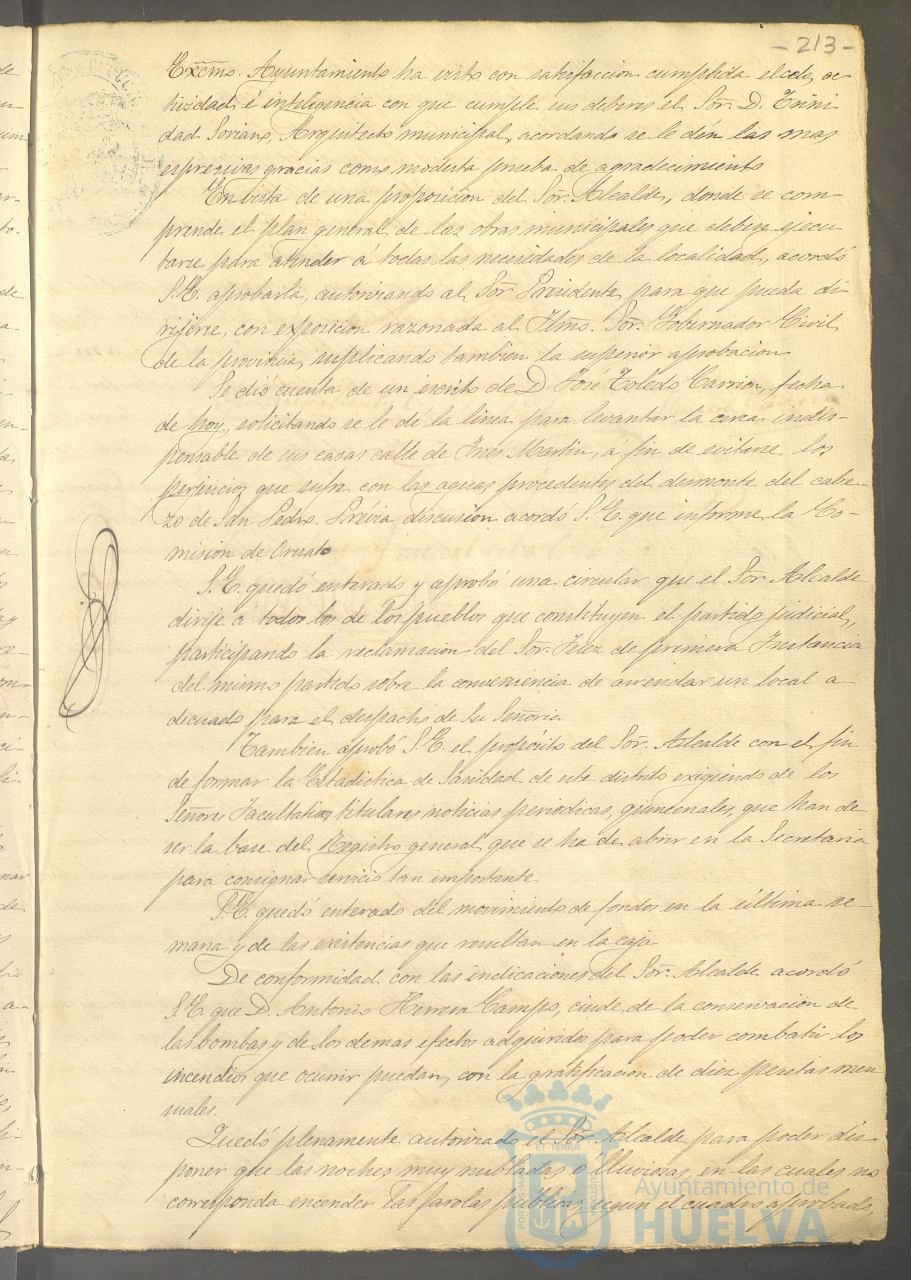 - 213 -
Excmo. Ayuntamiento ha visto con satisfaccion cumplida el celo, ac-
tividad é inteligencia con que cumple sus deberes el Sor. D. Trini-
dad Soriano, Arquitecto municipal, acordando se le dén las mas
espresivas gracias como modesta prueba de agradecimiento
En vista de una proposicion del Sor. Alcalde, donde se com-
prende el plan general de las obras municipales que deben ejecu-
tarse para atender á todas las necesidades de la localidad, acordó
S.E. aprobarla, autorizando al Sor Presidente para que pueda di-
rijirse, con exposicion razonada al Iltmo. Sor. Gobernador Civil
de la provincia, suplicando tambien la superior aprobacion
Se dió cuenta de un escrito de D José Toledo Carrion, fecha
de hoy, solicitando se le dé la linea para levantar la cerca indis-
pensable de sus casas calle de Ines Martin, á fin de evitarse los
perjuicios que sufre con las aguas procedentes del desmonte del cabe-
zo de San Pedro. Previa discusion acordó S.E. que informe la Co-
mision de Ornato
S.E. quedó enterado y aprobó una circular que el Sor Alcalde
dirije á todos los de los pueblos que constituyen el partido judicial,
participando la reclamacion del Sor. Juez de primera Instancia
del mismo partido sobre la conveniencia de arrendar un local a-
decuado para el despacho de Su Señoria
Tambien aprobó S.E. el propósito del Sor. Alcalde con el fin
de formar la Estadistica de Sanidad de este distrito exigiendo de los
Señores Facultativos titulares noticias periodicas, quincenales, que han de
ser la base del Registro general que se ha de abrir en la Secretaria
para consignar servicio tan importante
S.E. quedó enterado del movimiento de fondos en la última se-
mana y de las existencias que resultan en la caja
De conformidad con las indicaciones del Sor. Alcalde acordó
S.E. que D. Antonio Herrera Campos, cuide de la conservacion de
las bombas y de los demas efectos adquiridos para poder combatir los
incendios que ocurrir puedan, con la gratificacion de diez pesetas men
suales.
Quedó plenamente autorizado el Sor. Alcalde para poder dis-
poner que las noches muy nubladas ó lluviosas, en las cuales no
corresponda encender las farolas públicas, segun el cuadro aprobado,
Ayuntamiento de
HUELVA